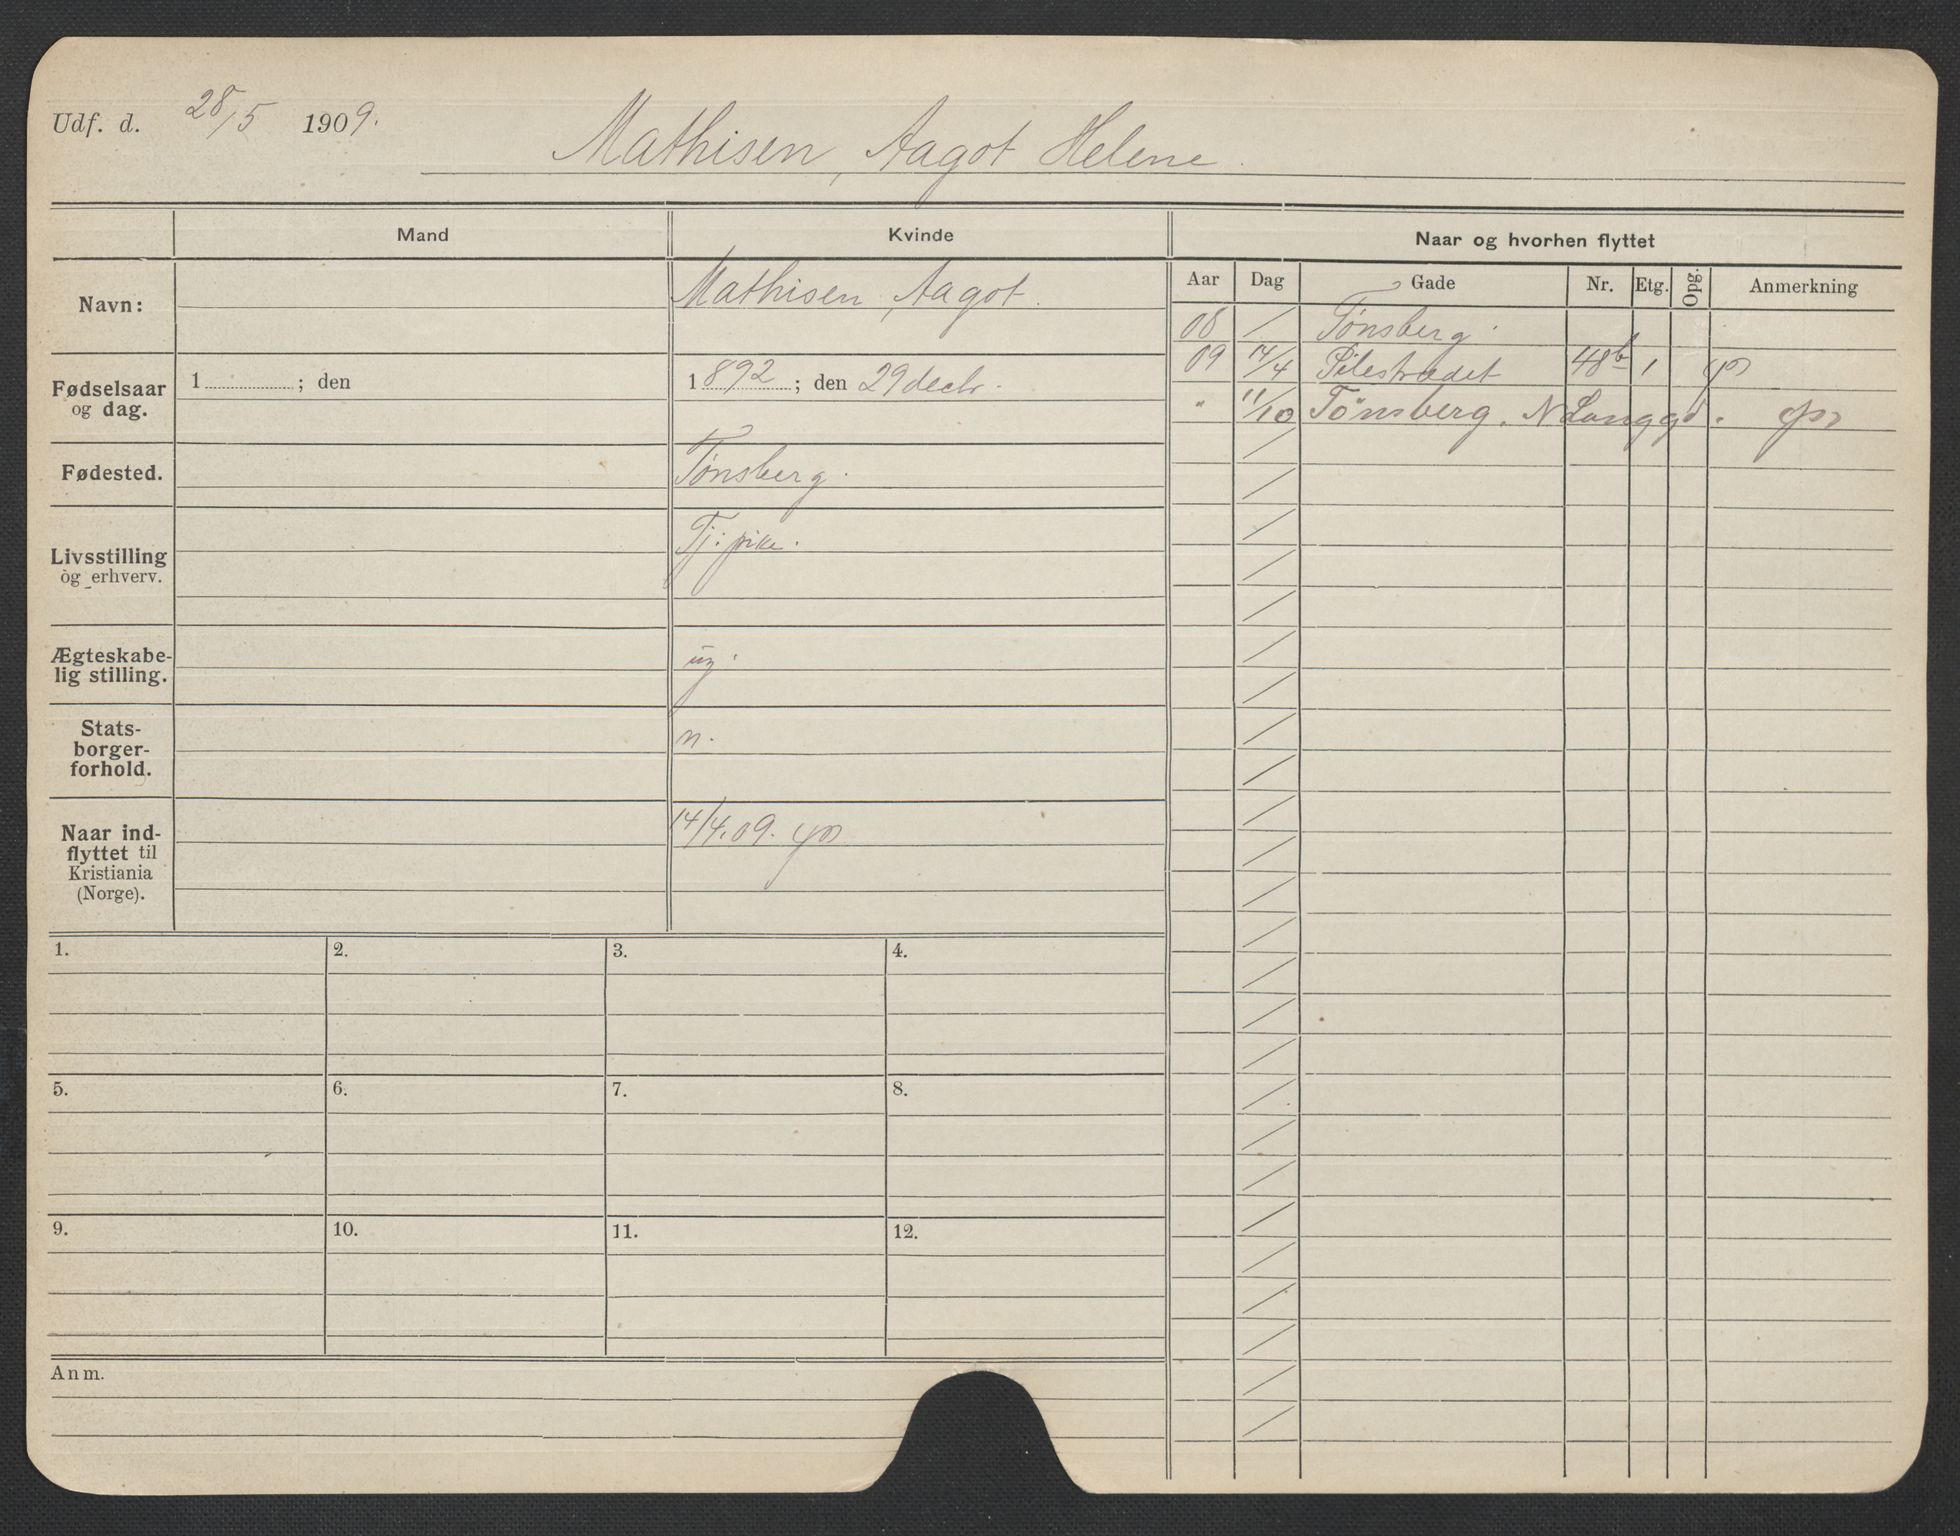 Udf. d. 28/5 1909.
Mathisen, Aagot Helene.
Mand
Kvinde
Naar og hvorhen flyttet
Navn:
Mathisen, Aagot.
Aar Dag Gade Nr. Etg. Opg. Anmerkning
08 / Tønsberg.
09 14/4 Pilestrædet 48b 1
" 11/10 Tønsberg. N Langgd.
Fødselsaar
og dag.
1 ; den
1892 ; den 29 decbr.
Fødested.
Tønsberg.
Livsstilling
og erhverv.
Tj: pike.
Ægteskabe-
lig stilling.
ug.
Stats-
borger-
forhold.
n.
Naar ind-
flyttet til
Kristiania
(Norge).
14/4.09.
1. 2. 3. 4.
5. 6. 7. 8.
9. 10. 11. 12.
Anm.